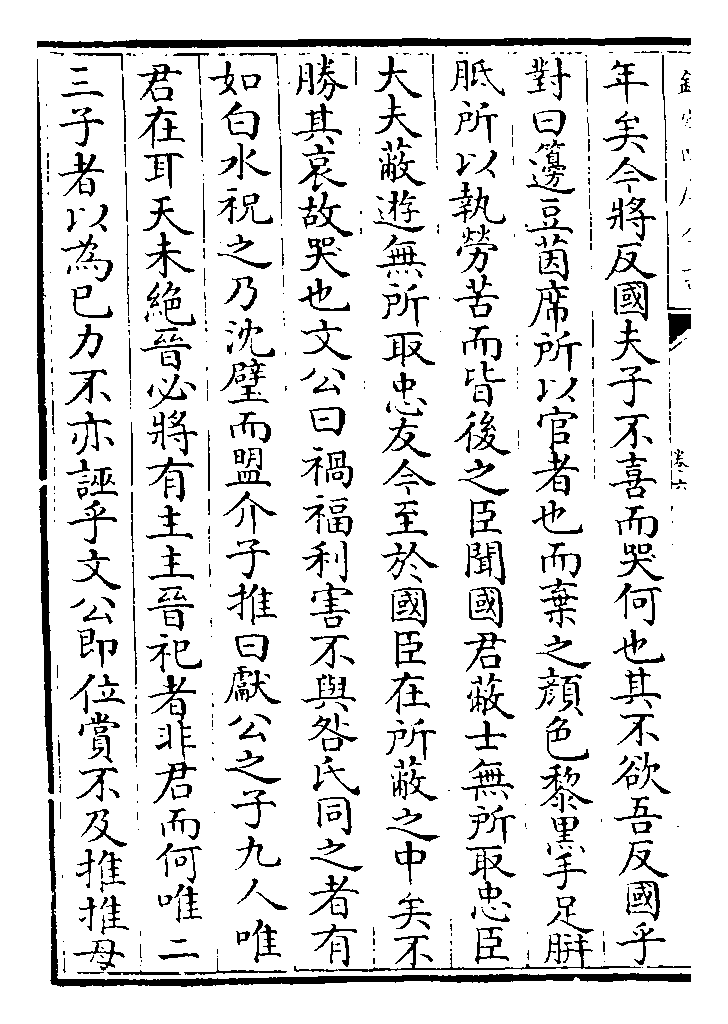 年矣今將反國夫子不喜而哭何也其不欲吾反國乎
對曰籩豆茵席所以官者也而棄之顔色黎黒手足胼
胝所以執勞苦而皆後之臣聞國君蔽士無所取忠臣
大夫蔽遊無所取忠友今至於國臣在所蔽之中矣不
勝其哀故哭也文公曰禍福利害不與咎氏同之者有
如白水祝之乃沈璧而盟介子推曰獻公之子九人唯
君在耳天未絶晉必將有主主晉祀者非君而何唯二
三子者以為已力不亦誣乎文公即位賞不及推推母
卷六